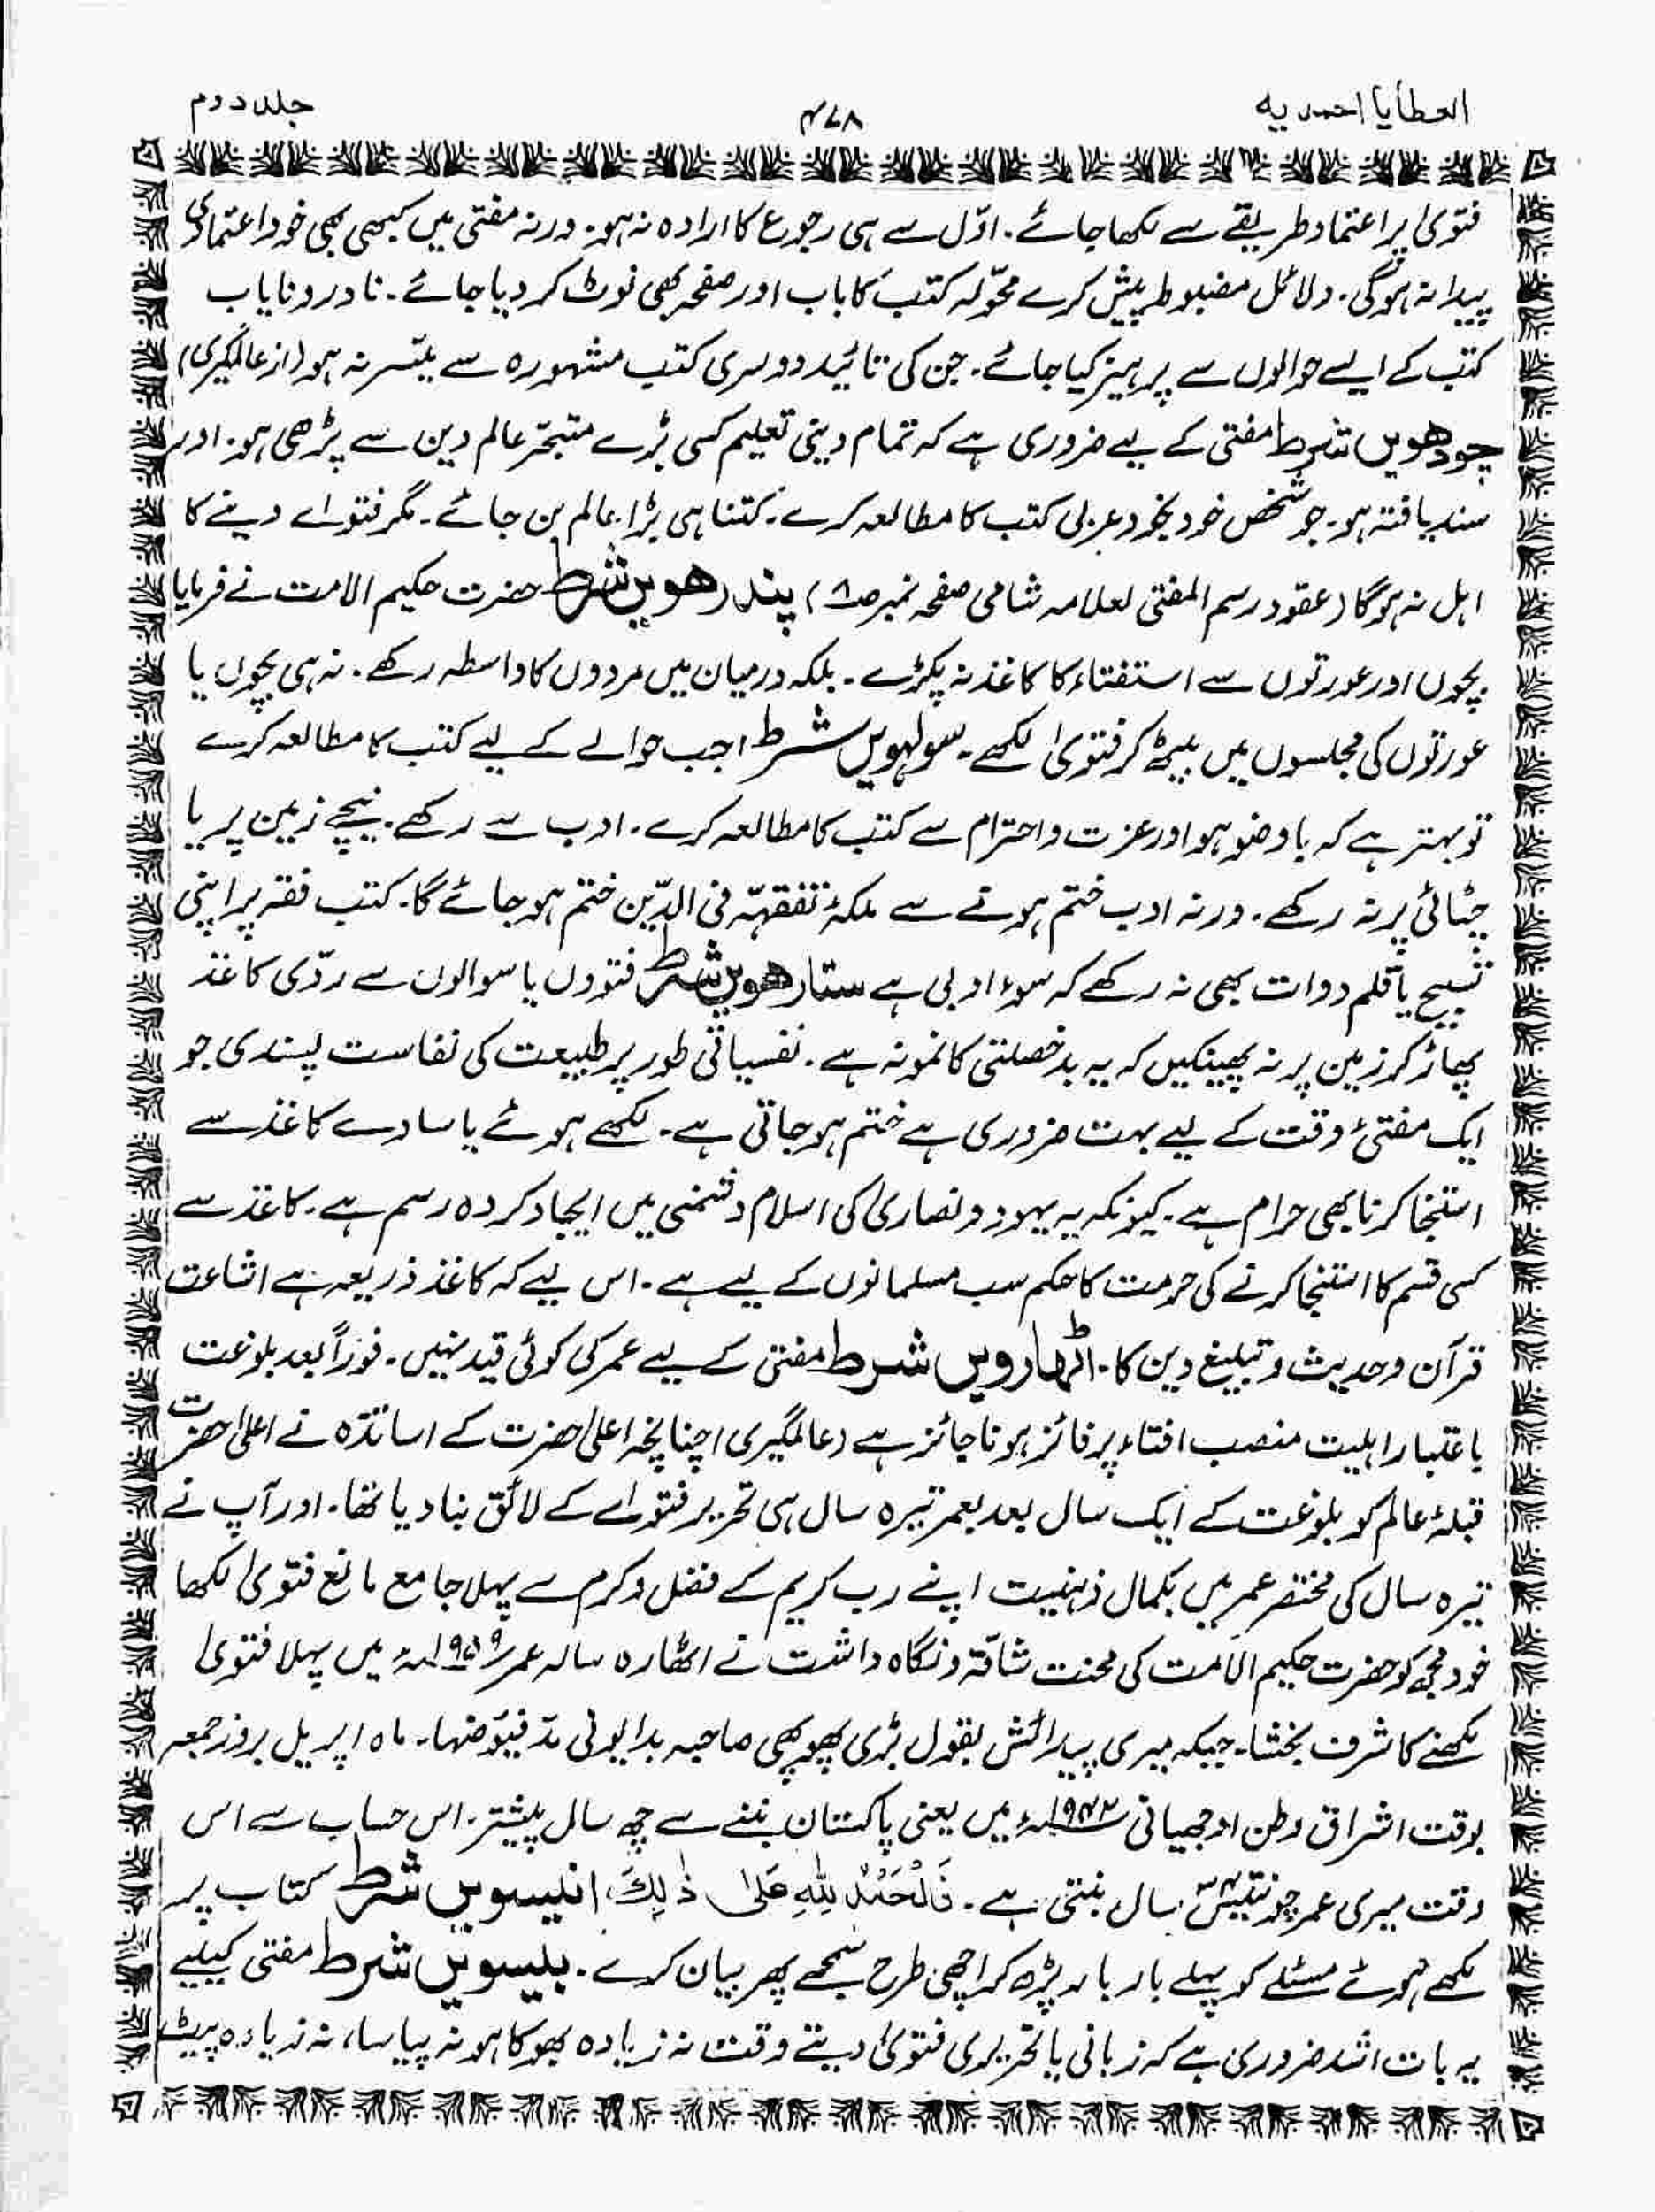 العطایا احمدیہ
۴۷۸
جلد دوم
فتویٰ پر اعتماد طریقے سے لکھا جائے۔ اوّل سے ہی رجوع کا ارادہ نہ ہو۔ ورنہ مفتی میں کبھی بھی خود اعتمادی
پیدا نہ ہوگی۔ دلائل مضبوط پیش کرے محوّلہ کتب کا باب اور صفحہ بھی نوٹ کر دیا جائے۔ نادر و نایاب
کتب کے ایسے حوالوں سے پرہیز کیا جائے۔ جن کی تائید دوسری کتب مشہورہ سے میسّر نہ ہو (از عالمگیری)
چودھویں شرط مفتی کے لیے ضروری ہے کہ تمام دینی تعلیم کسی بڑے متبحّر عالم دین سے پڑھی ہو۔ اور
سند یافتہ ہو۔ جو شخص خود بخود عربی کتب کا مطالعہ کرے۔ کتنا ہی بڑا عالم بن جائے۔ مگر فتوٰے دینے کا
اہل نہ ہوگا (عقود رسم المفتی لعلامہ شامی صفحہ نمبر صـ۸) پندرھویں شرط حضرت حکیم الامت نے فرمایا
بچوں اور عورتوں سے استفتاء کا کاغذ نہ پکڑے۔ بلکہ درمیان میں مردوں کا واسطہ رکھے۔ نہ ہی بچوں یا
عورتوں کی مجلسوں میں بیٹھ کر فتویٰ لکھے۔ سولہویں شرط ، جب حوالے کے لیے کتب کا مطالعہ کرے
تو بہتر ہے کہ باوضو ہو اور عزت و احترام سے کتب کا مطالعہ کرے۔ ادب سے رکھے۔ نیچے زمین پر یا
چٹائی پر نہ رکھے۔ ورنہ ادب ختم ہونے سے ملکۂ تفقہّہ فی الدّین ختم ہو جائے گا۔ کتب فقہ پر اپنی
تسبیح یا قلم دوات بھی نہ رکھے کہ سوء ادبی ہے ستارھویں شرط فتووں یا سوالوں سے ردّی کاغذ
پھاڑ کر زمین پر نہ پھینکیں کہ یہ بدخصلتی کا نمونہ ہے۔ نفسیاتی طور پر طبیعت کی نفاست پسندی جو
ایک مفتیٔ وقت کے لیے بہت ضروری ہے ختم ہو جاتی ہے۔ لکھے ہوئے یا سادے کاغذ سے
استنجا کرنا بھی حرام ہے۔ کیونکہ یہ یہود و نصاریٰ کی اسلام دشمنی میں ایجاد کردہ رسم ہے۔ کاغذ سے
کسی قسم کا استنجا کرنے کی حرمت کا حکم سب مسلمانوں کے لیے ہے۔ اس لیے کہ کاغذ ذریعہ ہے اشاعت
قرآن و حدیث و تبلیغ دین کا۔ اٹھارویں شرط مفتی کے لیے عمر کی کوئی قید نہیں۔ فوراً بعد بلوغت
باعتبار اہلیت منصب افتاء پر فائز ہونا جائز ہے (عالمگیری) چنانچہ اعلیٰ حضرت کے اساتذہ نے اعلیٰ حضرت
قبلۂ عالم کو بلوغت کے ایک سال بعد بعمر تیرہ سال ہی تحریر فتوٰے کے لائق بنا دیا تھا۔ اور آپ نے
تیرہ سال کی مختصر عمر میں بکمال ذہنیت اپنے رب کریم کے فضل و کرم سے پہلا جامع مانع فتویٰ لکھا
خود مجھ کو حضرت حکیم الامت کی محنت شاقّہ و نگاہ داشت نے اٹھارہ سالہ عمر ۱۹۵۹ء میں پہلا فتویٰ
لکھنے کا شرف بخشا۔ جبکہ میری پیدائش بقول بڑی پھوپھی صاحبہ بدایونی مدّ فیوضہا۔ ماہ اپریل بروز جمعہ
بوقت اشراق وطن اوجھیانی ۱۹۴۲ء میں یعنی پاکستان بننے سے چھ سال پیشتر۔ اس حساب سے اس
وقت میری عمر چونتیس ۳۴ سال بنتی ہے۔ فَالْحَمْدُ لِلّٰہِ عَلٰی ذٰلِکَ انیسویں شرط کتاب پر
لکھے ہوئے مسئلے کو پہلے بار بار پڑھ کر اچھی طرح سمجھے پھر بیان کرے۔ بیسویں شرط مفتی کیلیے
یہ بات اشد ضروری ہے کہ زبانی یا تحریری فتویٰ دیتے وقت نہ زیادہ بھوکا ہو نہ پیاسا، نہ زیادہ پیٹ